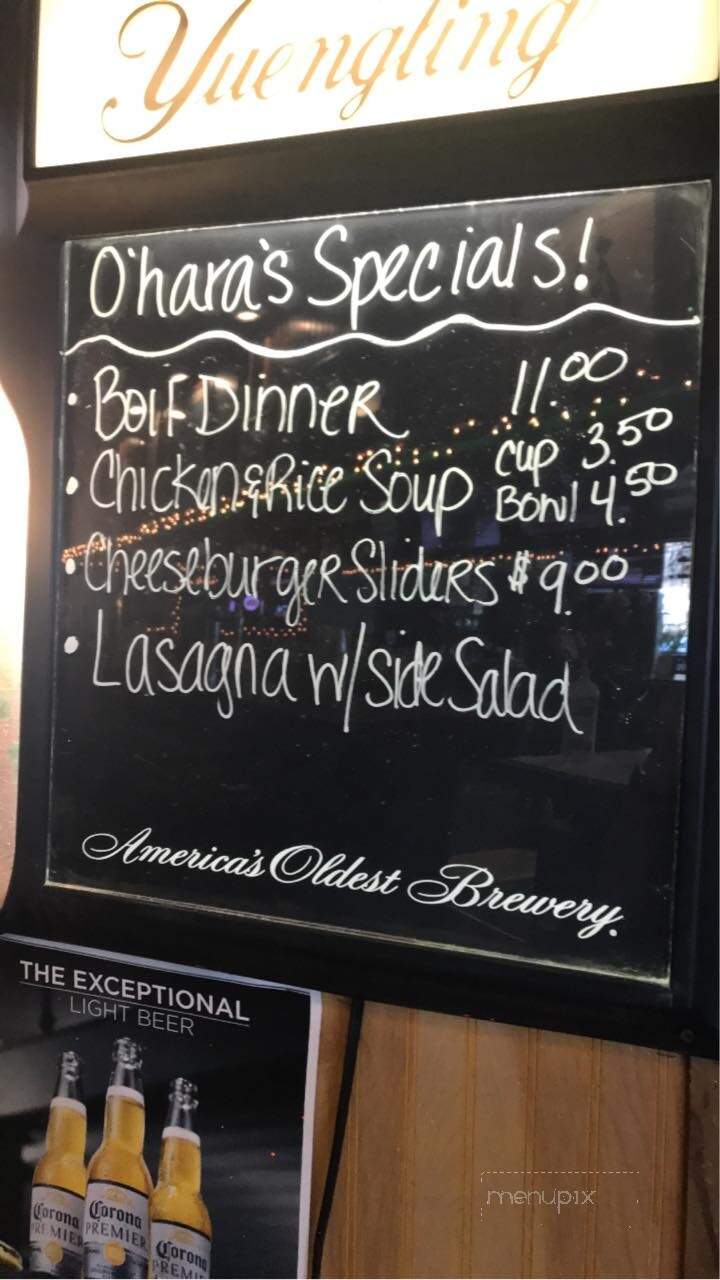 Yuengling
O'hara's Specials!
• Boil Dinner 11.00
• Chicken & Rice Soup cup 3.50
Bowl 4.50
• Cheeseburger Sliders $9.00
• Lasagna w/side Salad
America's Oldest Brewery.
THE EXCEPTIONAL
LIGHT BEER
Corona
PREMIER
Corona
PREMIER
Corona
PREMIER
menupix